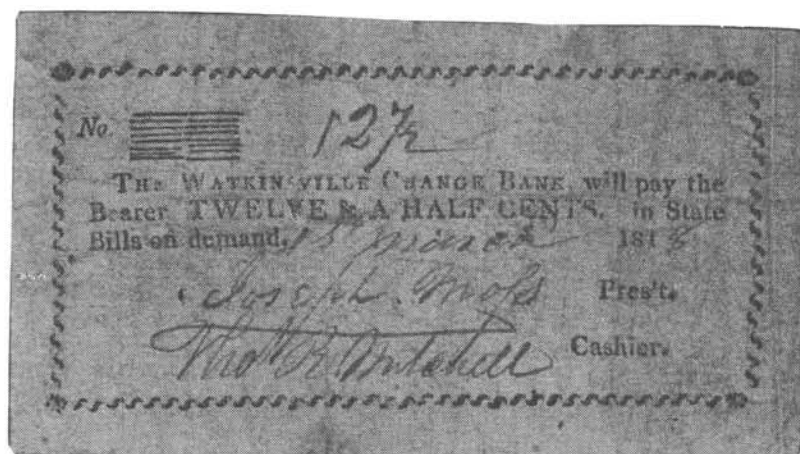 No 127½
THE WATKINSVILLE CHANGE BANK, will pay the
Bearer TWELVE & A HALF CENTS, in State
Bills on demand, 1st march 1818
Joseph. Moss Pres't.
Thos R. Mitchell Cashier.